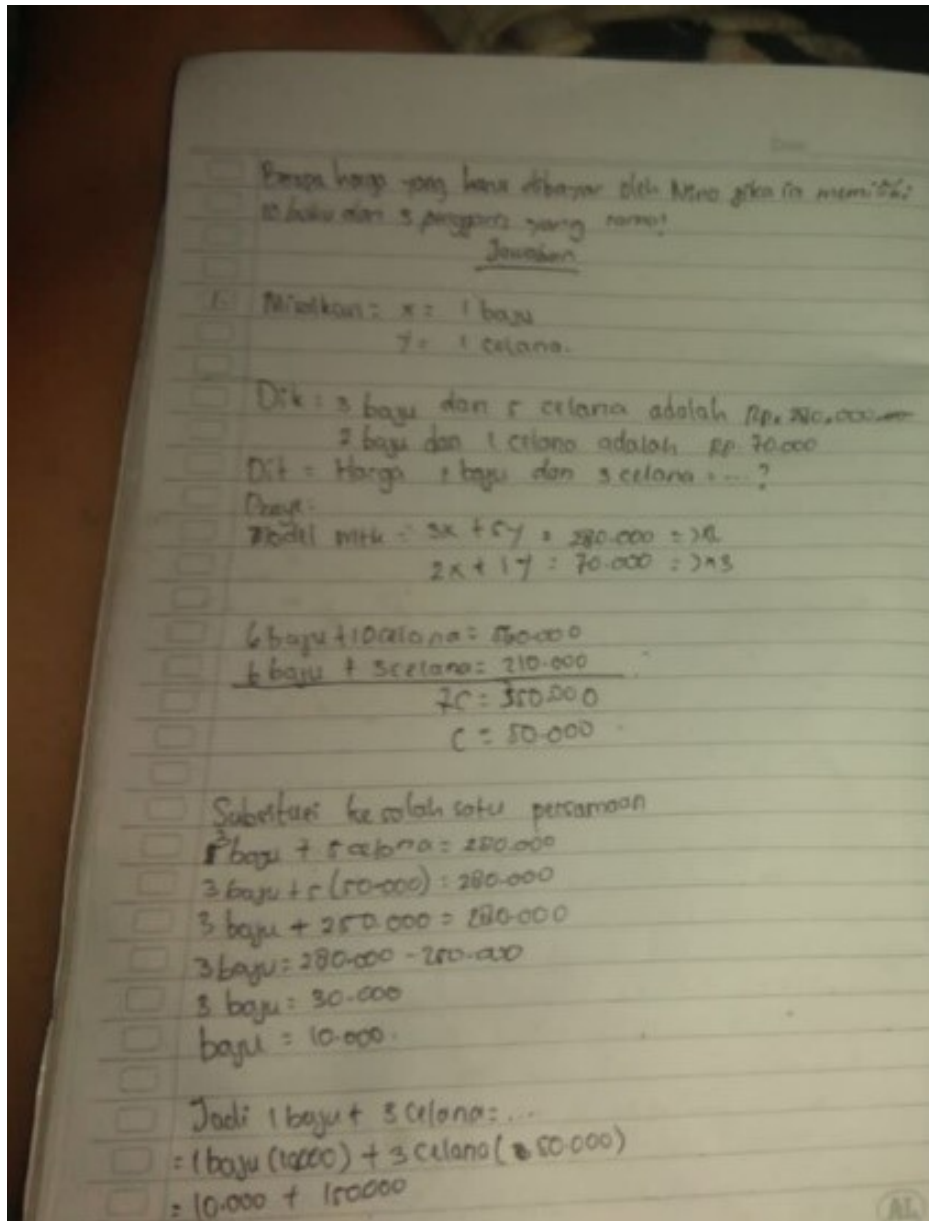 Berapa harga yang harus dibayar oleh Nino jika ia memiliki
10 buku dan 3 penggaris yang sama!
Jawaban
1. Misalkan: x = 1 baju
y = 1 celana.
Dik : 3 baju dan 5 celana adalah Rp. 280.000.00
2 baju dan 1 celana adalah Rp. 70.000
Dit = Harga 1 baju dan 3 celana = ...?
Model mtk = 3x + 5y = 280.000 = >x2
2x + 1y = 70.000 = >x3
6 baju + 10 celana = 560.000
6 baju + 3 celana = 210.000
7C = 350.000
C = 50.000
Substitusi ke salah satu persamaan
3 baju + 5 celana = 280.000
3 baju + 5 (50.000) = 280.000
3 baju + 250.000 = 280.000
3 baju = 280.000 - 250.000
3 baju = 30.000
baju = 10.000.
Jadi 1 baju + 3 celana = ...
= 1 baju (10000) + 3 celana ( 50.000)
= 10.000 + 150000
AL